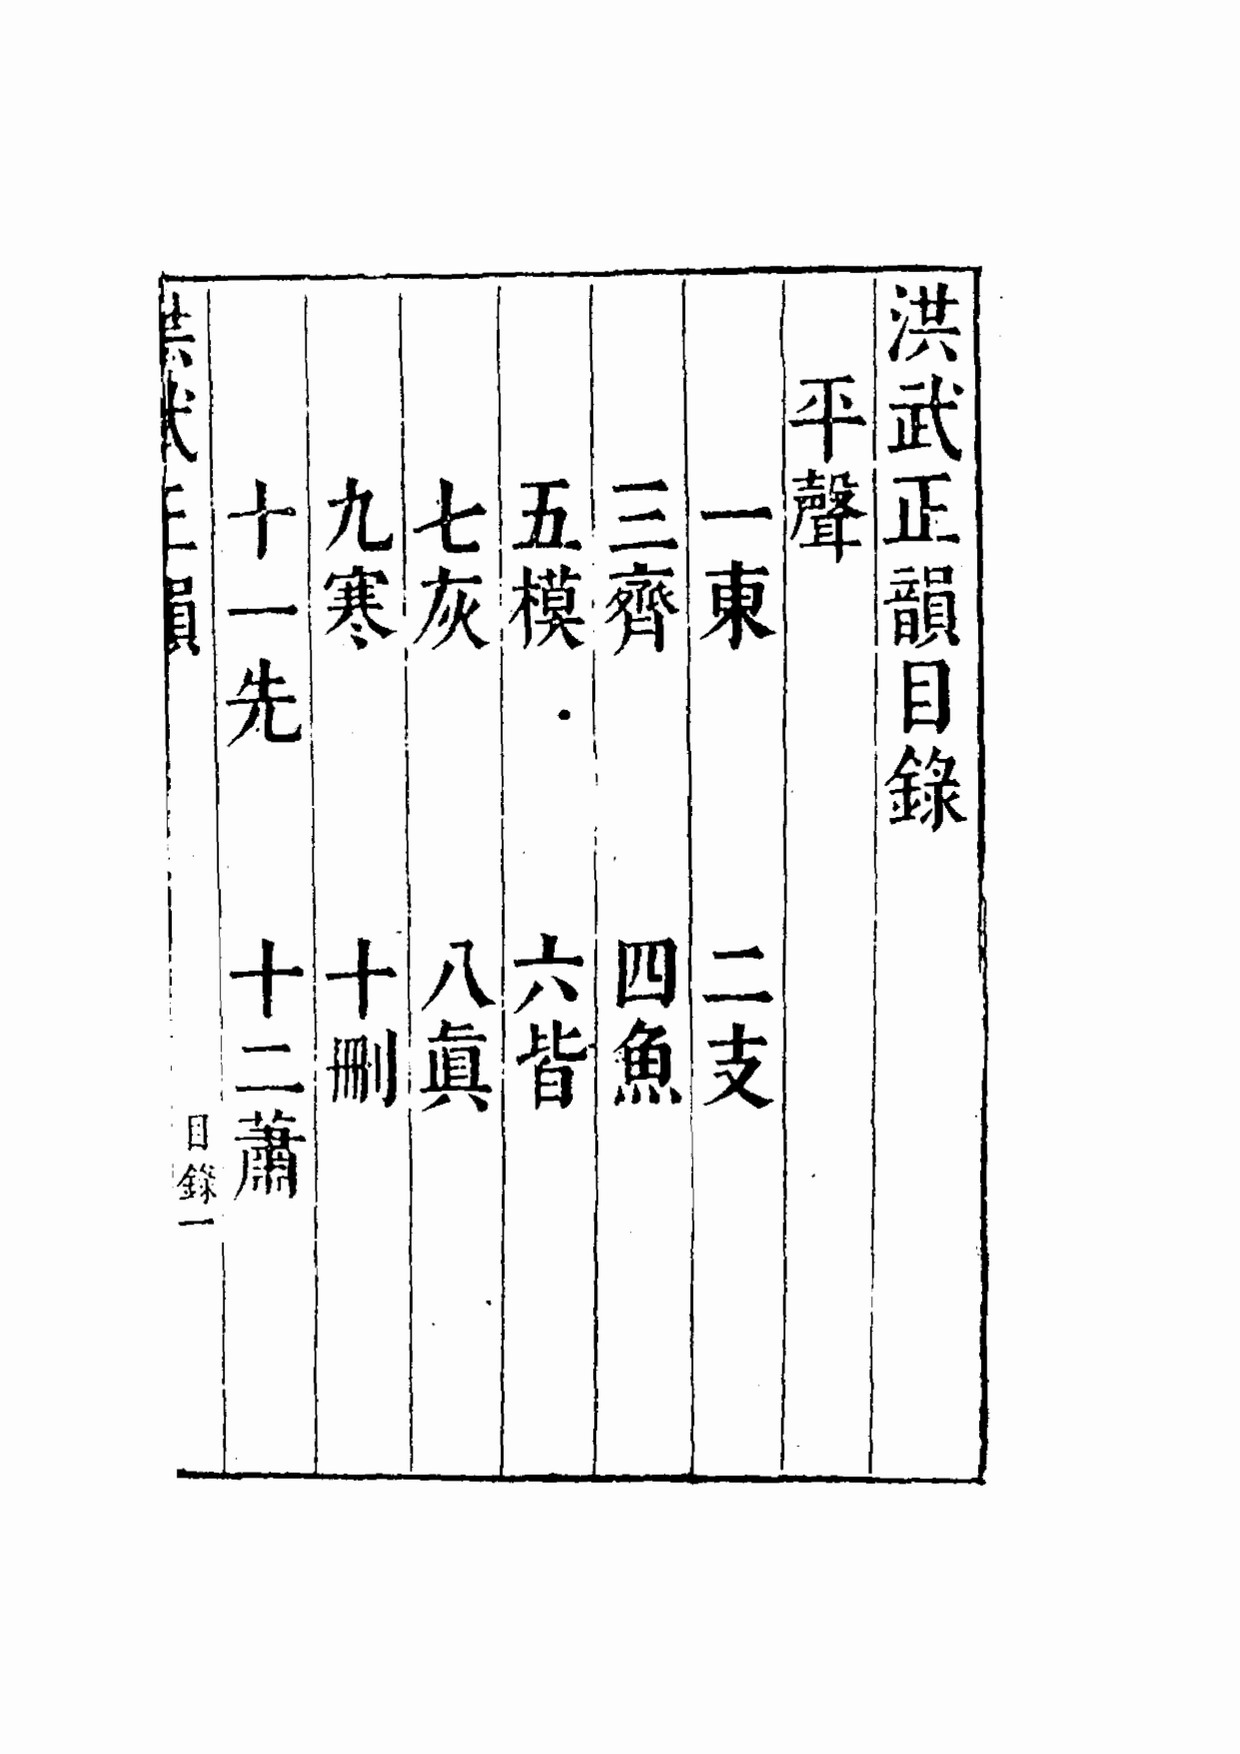 洪武正韻目錄
平聲
一東　二支
三齊　四魚
五模　六皆
七灰　八眞
九寒　十刪
十一先　十二蕭
洪武正韻　目錄一